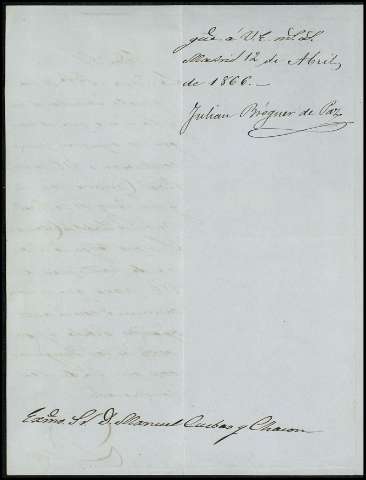 gue. á V.E. m.s a.s
Madrid 12 de Abril
de 1866.—
Julian Bröguer de Paz
Exmo. Sr. D. Manuel Cuebas y Chacon